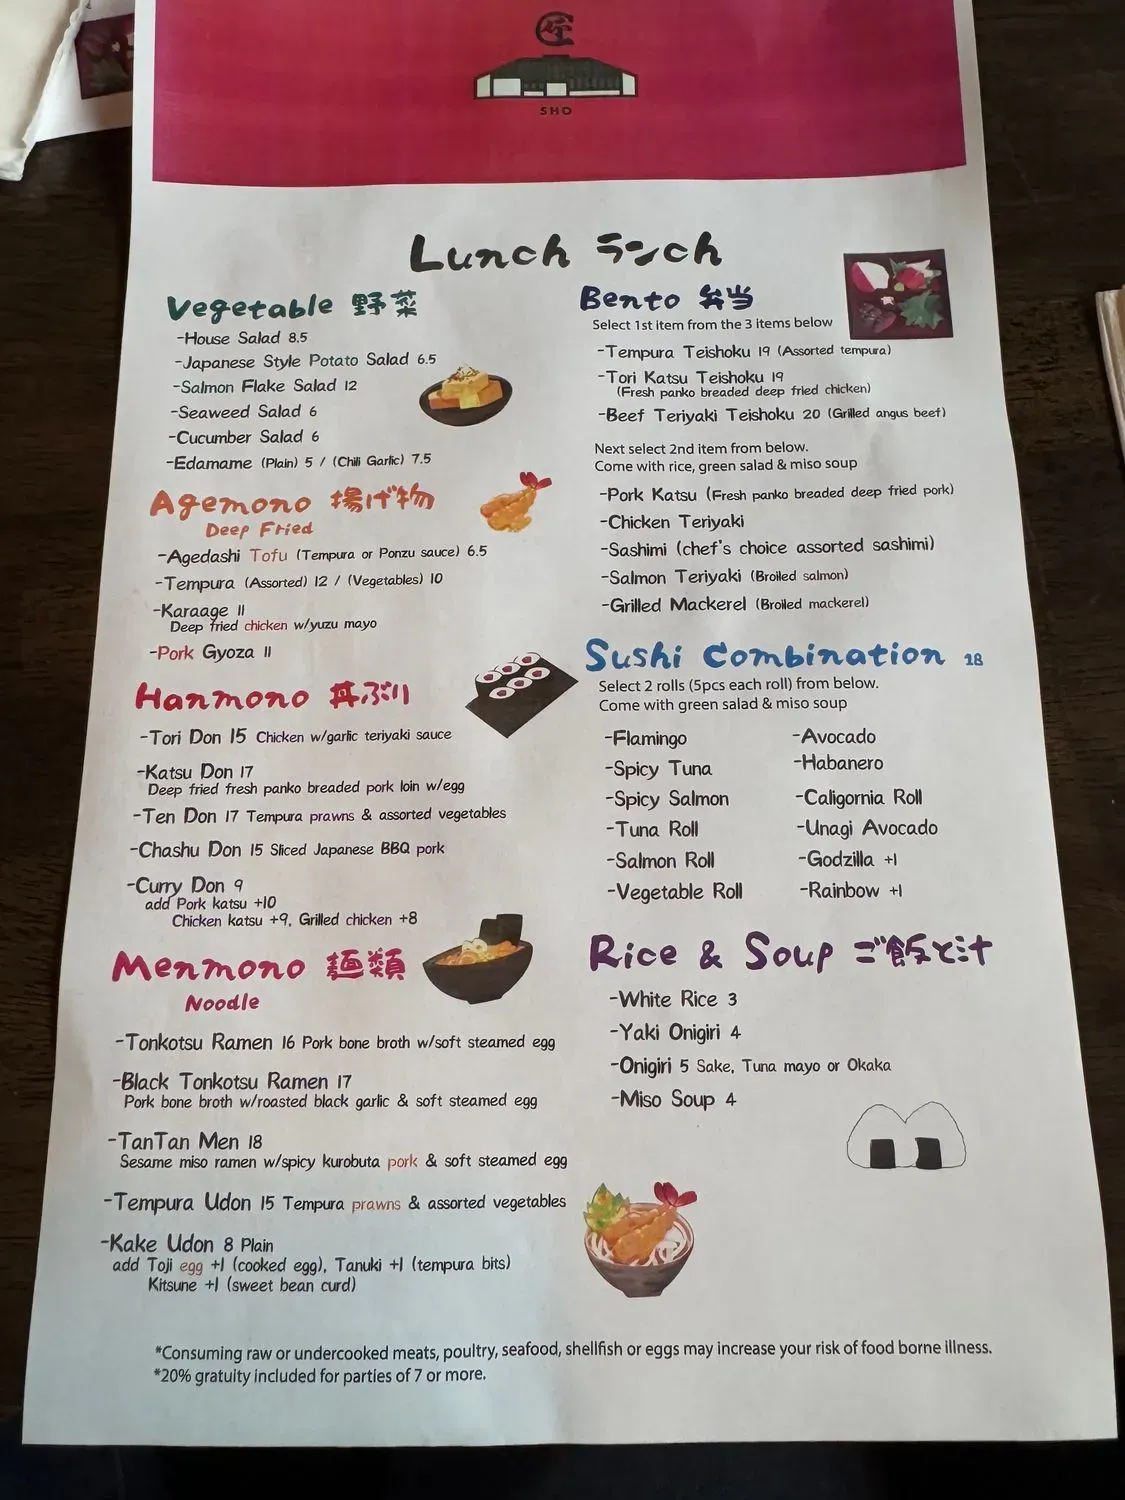 匠
SHO
Lunch ランch
Vegetable 野菜
-House Salad 8.5
-Japanese Style Potato Salad 6.5
-Salmon Flake Salad 12
-Seaweed Salad 6
-Cucumber Salad 6
-Edamame (Plain) 5 / (Chili Garlic) 7.5
Agemono 揚げ物
Deep Fried
-Agedashi Tofu (Tempura or Ponzu sauce) 6.5
-Tempura (Assorted) 12 / (Vegetables) 10
-Karaage 11
Deep fried chicken w/yuzu mayo
-Pork Gyoza 11
Hanmono 丼ぶり
-Tori Don 15 Chicken w/garlic teriyaki sauce
-Katsu Don 17
Deep fried fresh panko breaded pork loin w/egg
-Ten Don 17 Tempura prawns & assorted vegetables
-Chashu Don 15 Sliced Japanese BBQ pork
-Curry Don 9
add Pork katsu +10
Chicken katsu +9, Grilled chicken +8
Menmono 麺類
Noodle
-Tonkotsu Ramen 16 Pork bone broth w/soft steamed egg
-Black Tonkotsu Ramen 17
Pork bone broth w/roasted black garlic & soft steamed egg
-TanTan Men 18
Sesame miso ramen w/spicy kurobuta pork & soft steamed egg
-Tempura Udon 15 Tempura prawns & assorted vegetables
-Kake Udon 8 Plain
add Toji egg +1 (cooked egg), Tanuki +1 (tempura bits)
Kitsune +1 (sweet bean curd)
Bento 弁当
Select 1st item from the 3 items below
-Tempura Teishoku 19 (Assorted tempura)
-Tori Katsu Teishoku 19
(Fresh panko breaded deep fried chicken)
-Beef Teriyaki Teishoku 20 (Grilled angus beef)
Next select 2nd item from below.
Come with rice, green salad & miso soup
-Pork Katsu (Fresh panko breaded deep fried pork)
-Chicken Teriyaki
-Sashimi (chef's choice assorted sashimi)
-Salmon Teriyaki (Broiled salmon)
-Grilled Mackerel (Broiled mackerel)
Sushi Combination 18
Select 2 rolls (5pcs each roll) from below.
Come with green salad & miso soup
-Flamingo
-Spicy Tuna
-Spicy Salmon
-Tuna Roll
-Salmon Roll
-Vegetable Roll
-Avocado
-Habanero
-Caligornia Roll
-Unagi Avocado
-Godzilla +1
-Rainbow +1
Rice & Soup ご飯と汁
-White Rice 3
-Yaki Onigiri 4
-Onigiri 5 Sake, Tuna mayo or Okaka
-Miso Soup 4
*Consuming raw or undercooked meats, poultry, seafood, shellfish or eggs may increase your risk of food borne illness.
*20% gratuity included for parties of 7 or more.